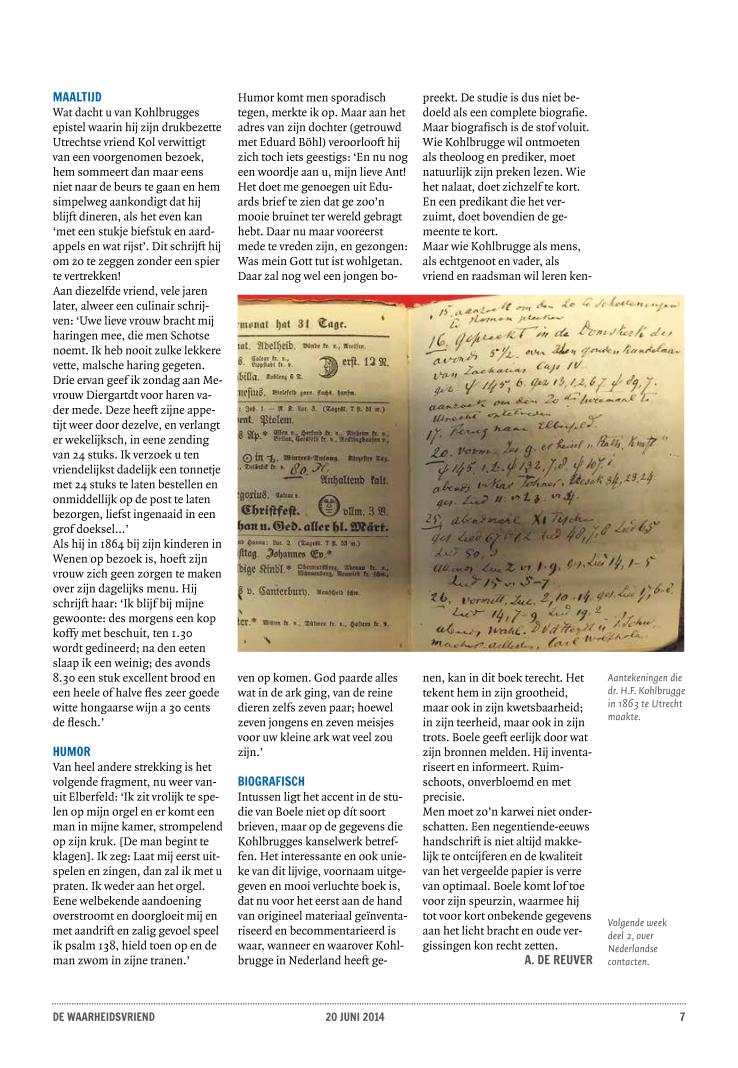 MAALTIJD
Wat dacht u van Kohlbrugges
epistel waarin hij zijn drukbezette
Utrechtse vriend Kol verwittigt
van een voorgenomen bezoek,
hem sommeert dan maar eens
niet naar de beurs te gaan en hem
simpelweg aankondigt dat hij
blijft dineren, als het even kan
‘met een stukje biefstuk en aard-
appels en wat rijst’. Dit schrijft hij
om zo te zeggen zonder een spier
te vertrekken!
Aan diezelfde vriend, vele jaren
later, alweer een culinair schrij-
ven: ‘Uwe lieve vrouw bracht mij
haringen mee, die men Schotse
noemt. Ik heb nooit zulke lekkere
vette, malsche haring gegeten.
Drie ervan geef ik zondag aan Me-
vrouw Diergardt voor haren va-
der mede. Deze heeft zijne appe-
tijt weer door dezelve, en verlangt
er wekelijksch, in eene zending
van 24 stuks. Ik verzoek u ten
vriendelijkst dadelijk een tonnetje
met 24 stuks te laten bestellen en
onmiddellijk op de post te laten
bezorgen, liefst ingenaaid in een
grof doeksel...’
Als hij in 1864 bij zijn kinderen in
Wenen op bezoek is, hoeft zijn
vrouw zich geen zorgen te maken
over zijn dagelijks menu. Hij
schrijft haar: ‘Ik blijf bij mijne
gewoonte: des morgens een kop
koffy met beschuit, ten 1.30
wordt gedineerd; na den eeten
slaap ik een weinig; des avonds
8.30 een stuk excellent brood en
een heele of halve fles zeer goede
witte hongaarse wijn a 30 cents
de flesch.’
HUMOR
Van heel andere strekking is het
volgende fragment, nu weer van-
uit Elberfeld: ‘Ik zit vrolijk te spe-
len op mijn orgel en er komt een
man in mijne kamer, strompelend
op zijn kruk. [De man begint te
klagen]. Ik zeg: Laat mij eerst uit-
spelen en zingen, dan zal ik met u
praten. Ik weder aan het orgel.
Eene welbekende aandoening
overstroomt en doorgloeit mij en
met aandrift en zalig gevoel speel
ik psalm 138, hield toen op en de
man zwom in zijne tranen.’
Humor komt men sporadisch
tegen, merkte ik op. Maar aan het
adres van zijn dochter (getrouwd
met Eduard Böhl) veroorlooft hij
zich toch iets geestigs: ‘En nu nog
een woordje aan u, mijn lieve Ant!
Het doet me genoegen uit Edu-
ards brief te zien dat ge zoo’n
mooie bruinet ter wereld gebragt
hebt. Daar nu maar vooreerst
mede te vreden zijn, en gezongen:
Was mein Gott tut ist wohlgetan.
Daar zal nog wel een jongen bo-
ven op komen. God paarde alles
wat in de ark ging, van de reine
dieren zelfs zeven paar; hoewel
zeven jongens en zeven meisjes
voor uw kleine ark wat veel zou
zijn.’
BIOGRAFISCH
Intussen ligt het accent in de stu-
die van Boele niet op dít soort
brieven, maar op de gegevens die
Kohlbrugges kanselwerk betref-
fen. Het interessante en ook unie-
ke van dit lijvige, voornaam uitge-
geven en mooi verluchte boek is,
dat nu voor het eerst aan de hand
van origineel materiaal geïnventa-
riseerd en becommentarieerd is
waar, wanneer en waarover Kohl-
brugge in Nederland heeft ge-
preekt. De studie is dus niet be-
doeld als een complete biografie.
Maar biografisch is de stof voluit.
Wie Kohlbrugge wil ontmoeten
als theoloog en prediker, moet
natuurlijk zijn preken lezen. Wie
het nalaat, doet zichzelf te kort.
En een predikant die het ver-
zuimt, doet bovendien de ge-
meente te kort.
Maar wie Kohlbrugge als mens,
als echtgenoot en vader, als
vriend en raadsman wil leren ken-
nen, kan in dit boek terecht. Het
tekent hem in zijn grootheid,
maar ook in zijn kwetsbaarheid;
in zijn teerheid, maar ook in zijn
trots. Boele geeft eerlijk door wat
zijn bronnen melden. Hij inventa-
riseert en informeert. Ruim-
schoots, onverbloemd en met
precisie.
Men moet zo’n karwei niet onder-
schatten. Een negentiende-eeuws
handschrift is niet altijd makke-
lijk te ontcijferen en de kwaliteit
van het vergeelde papier is verre
van optimaal. Boele komt lof toe
voor zijn speurzin, waarmee hij
tot voor kort onbekende gegevens
aan het licht bracht en oude ver-
gissingen kon recht zetten.
A. DE REUVER
monat hat 31 Tage.
Adelheid.
erst. 12 N.
Ptolem.
80
Anhaltend kalt.
Christfest.
vllm. 3 W.
han u. Ged. aller hl. Märt.
Johannes Ev.*
Kindl.*
v. Canterbury.
15. aanzoek om den 20 te Scheveningen
16. gepreekt in de Domkerk des
avonds 5 1/2. over den gouden kandelaar
van Zacharias Cap IV.
aanzoek om den 20
17. Terug naar Elberfeld.
25. abendmahl XI Tische
Aantekeningen die
dr. H.F. Kohlbrugge
in 1863 te Utrecht
maakte.
Volgende week
deel 2, over
Nederlandse
contacten.
DE WAARHEIDSVRIEND
20 JUNI 2014
7